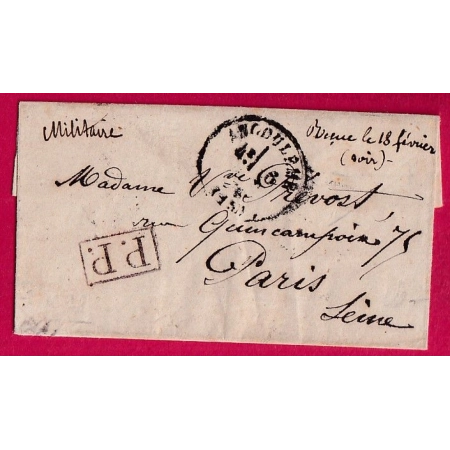 Militaire
Reçue le 18 février
(soir)-
ANGOULEME
Madame Vve Prévost
rue Quincampoix 75
Paris
Seine
P.P.